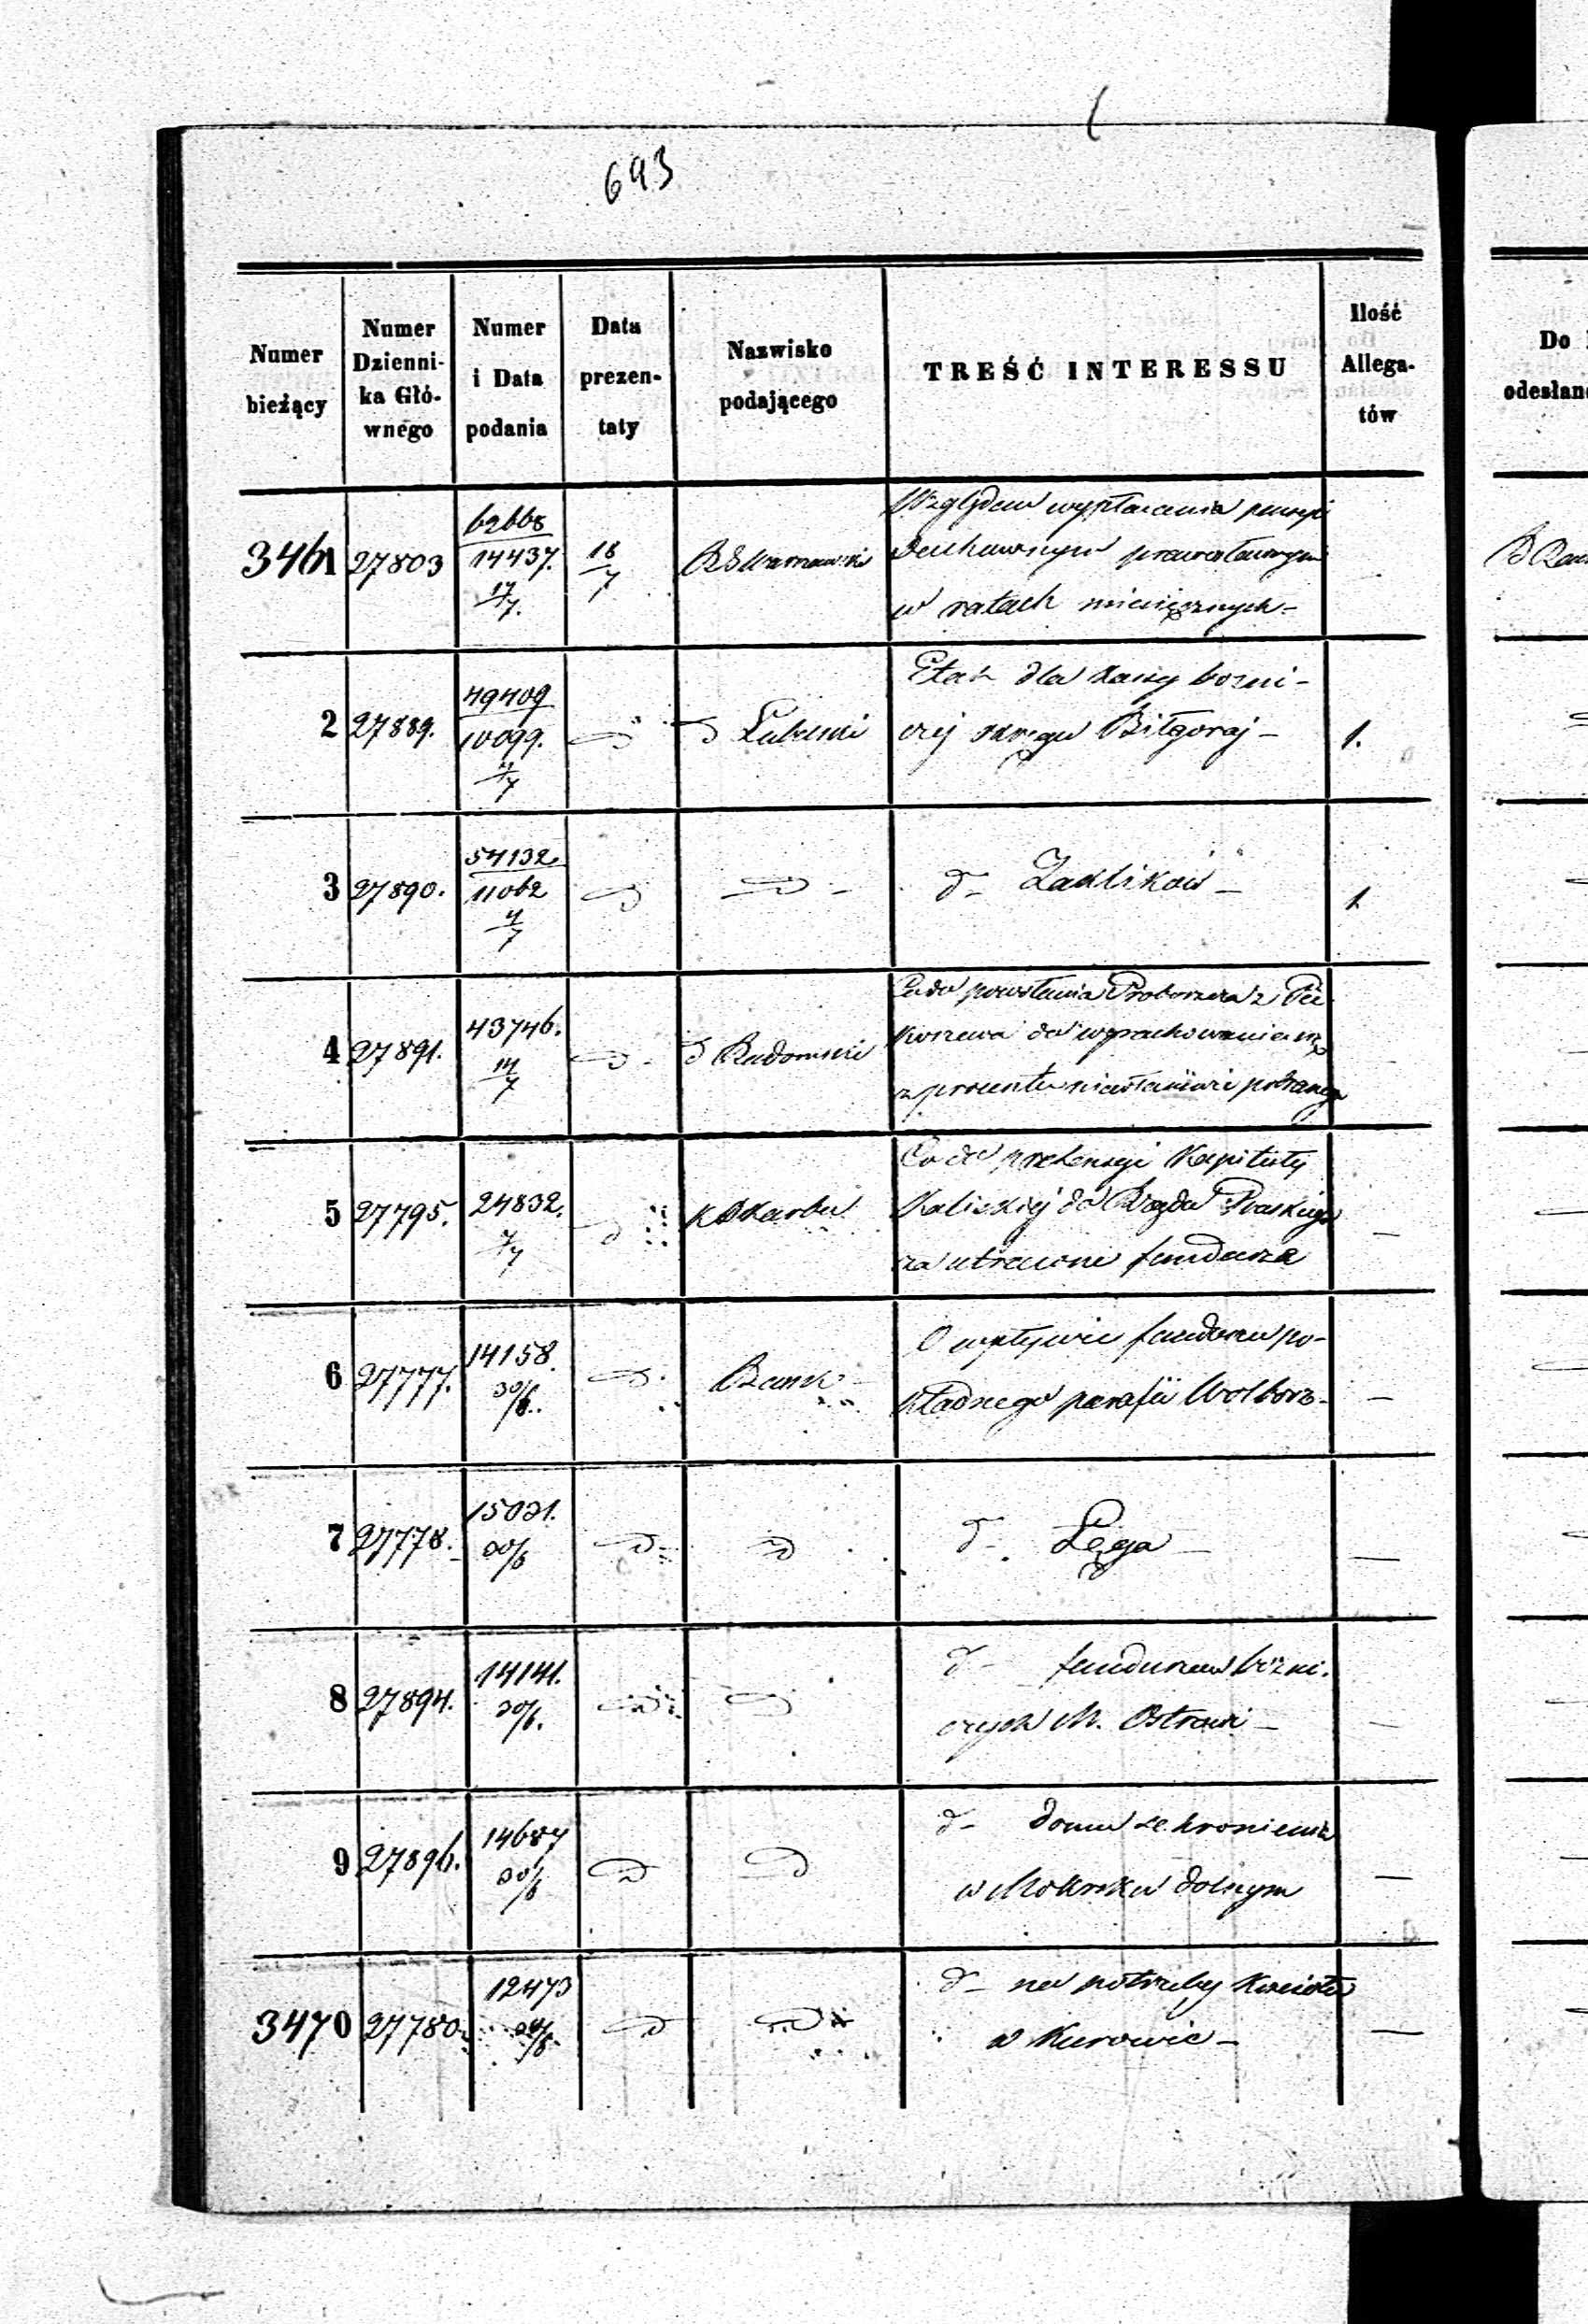 693
Numer bieżący
Numer Dzienni-ka Głó-wnego
Numer i Data podania
Data prezen-taty
Nazwisko podającego
TREŚĆ INTERESSU
Ilość Allega-tów
Do
odesłano
3461 27803 62668 / 14437. 17/7. 18/7 Względem wypłacenia pensyi
Duchownym prawosławnym
w ratach miesięcznych -
2 27889. 49409 / 10099. d Lubelski Etat dla Kassy bożni-
czej okręgu Biłgoraj - 1.
3 27890. 54132. / 11062 4/7 d d - d - Zaklików - 1
4 27891. 43746. 14/7 d - d Radomski Co do powołania Proboszcza z
do wyrachowania się
z procentu niewłaściwie pobranego
5 27795. 24832. 7/7 d K Skarbu Co do pretensyi Kapituły
Kaliskiej do Rządu Pruskiego
za utracone fundusze -
6 27777. 14158. 30/6. d Bank O wpływie funduszu po-
kładnego parafii Wolborz - -
7 27778. 15031. 30/6 d - d d - Łęga - -
8 27894. 14141. 30/6. d d d - funduszu bożni-
czych M. Ostrowi - -
9 27896. 14687 30/6 d d d - domu schronienia
w Mokrsku dolnym -
3470 27780. 12473 30/6. d d d - na potrzeby Kościoła
w Kurowie - -